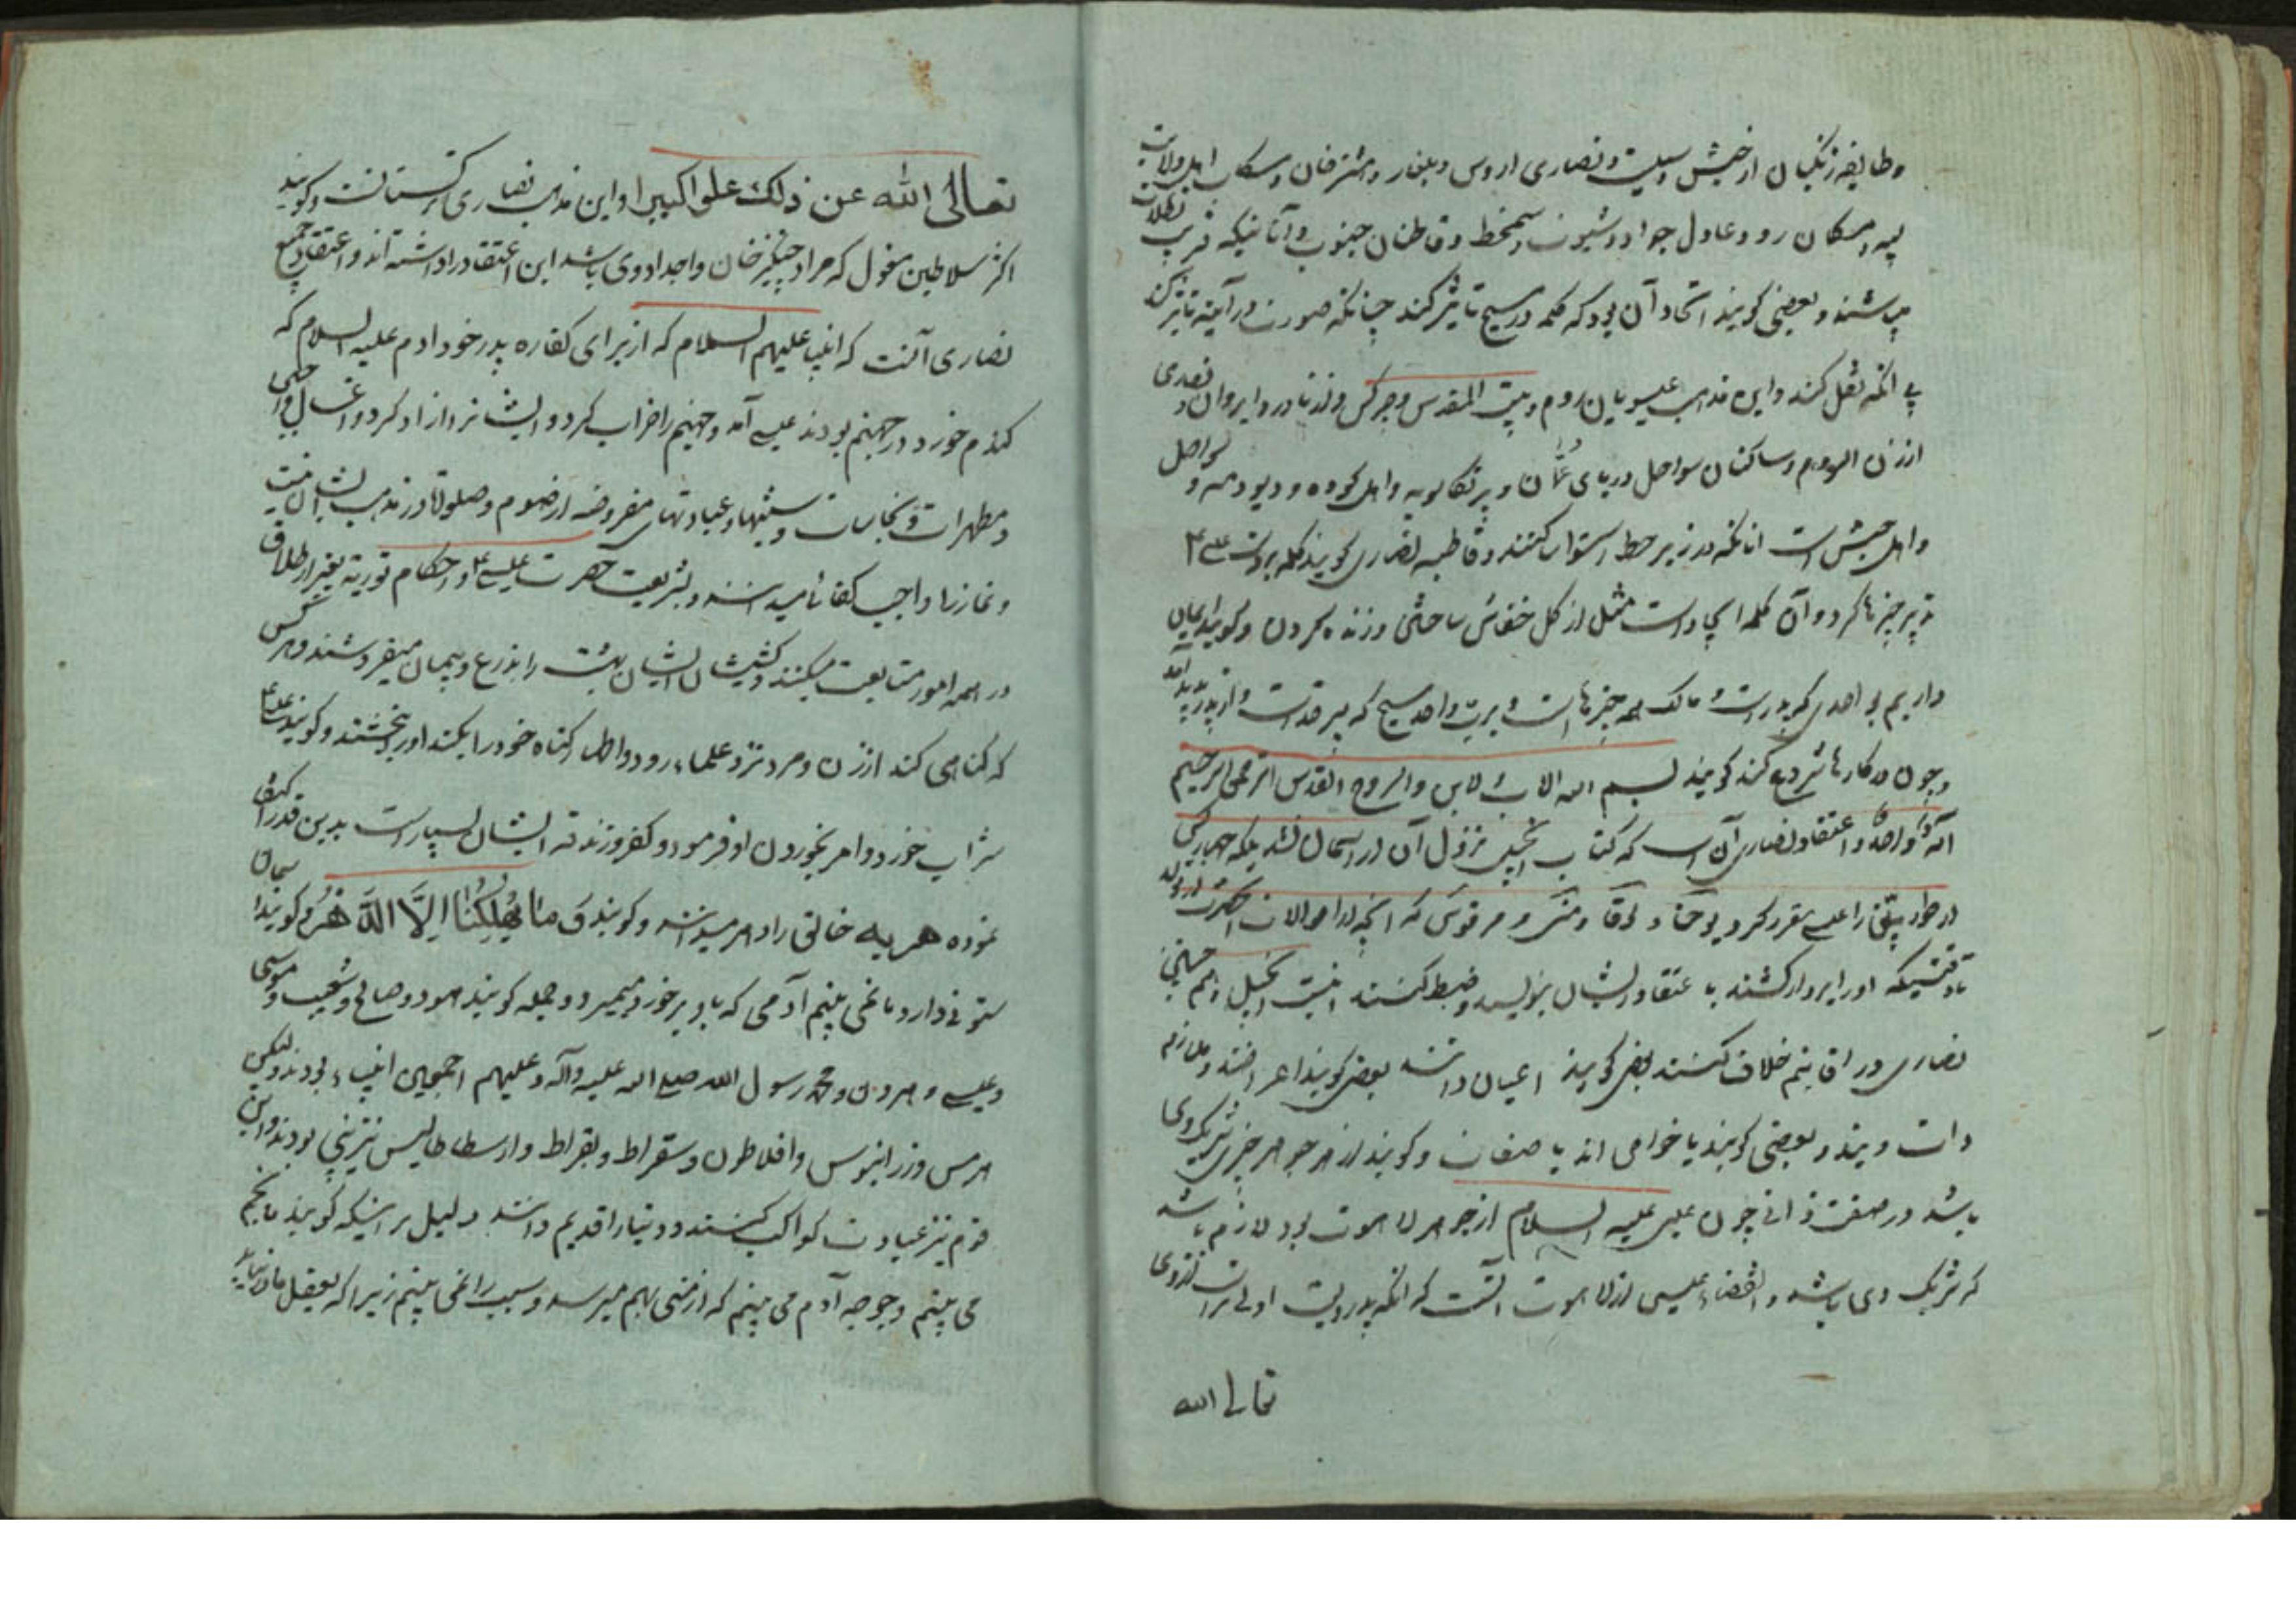 وطایفه زنکیان از حبش و نصاری اروس و بلغار و مشترخان و سکان اهل ولایت
و سکان رود و عادل جواد و شیون و قاطنان جنوب و آنانیکه قریب
میباشند و بعضی کویند اتحاد آن بود که کلمه در مسیح تاثیر کند چنانکه صورت در آینه تاثیر کند
بی انکه نقل کند و این مذهب عیسویان روم و بیت المقدس و چرکس و ایروان و نصاری
ارزن الروم و ساکنان سواحل دریای عمان و پرتکالویه و اهل کووه و دیو دمه و سواحل
و اهل حبش است انانکه در زیر خط استوا و قاطبه نصاری کویند کلمه
چیزها کرد و آن کلمه ایجاد است مثل از کل خفاش ساختن و زنده کردن و کویند ایمان
داریم بر احدی که پدر است و مالک همه چیزهاست و برب واحد مسیح که پسر خداست و از پدر پدید آمد
و چون در کارها شروع کنند کویند بسم الله الاب والابن والروح القدس الرحمن الرحیم
الهًا واحدًا و اعتقاد نصاری آن است که کتاب انجیل نزول آن از آسمان نشد بلکه چهار کس
از حواریین را عیسی مقرر کرد یوحنا و لوقا و متی و مرقوس که آنچه از احوالات انحضرت از تولد
تا وقتیکه اورا بردار کشند با عتقاد ایشان بنویسند و ضبط کنند اینست انجیل و هم چنین
نصاری در اقانیم خلاف کنند بعضی کویند اعیان دانند بعضی کویند اعراضند و ملازم
ذات ویند و بعضی کویند یا خواص اند یا صفات و کویند از هر جوهر چیزی شریک وی
باشد در صفت ذاتی چون عیسی علیه السلام از جوهر لاهوت بود لازم باشد
که شریک وی باشد و عیسی از لاهوت آنست که انکه پدریت اولی تراست از وی
تعالی الله
تعالی الله عن ذلک علوا کبیرا و این مذهب نصاری کرجستانست و کویند
اکثر سلاطین مغول که مراد چنکیز خان و اجداد وی باشد این اعتقاد را داشته اند و اعتقاد جمیع
نصاری آنست که انبیا علیهم السلام که از برای کفاره پدر خود ادم علیه السلام که
کندم خورد در جهنم بودند عیسی آمد و جهنم را خراب کرد و ایشانرا ازاد کرد و اغسال واجبی
و مطهرات و نجاسات و سنتیها و عبادتهای مفروضه از صوم و صلوة در مذهب ایشان نیست
و نماز را واجب کفائی میدانند و بشریعت حضرت عیسی ۴ و احکام توریة بغیر از طلاق
در همه امور متابعت میکنند و کشیشان ایشان بهشت را بذرع و پیمان میفروشند و هر کس
که کناهی کند از زن و مرد نزد علماء رود و اظهار کناه خود را بکند اورا بخشند و کویند عیسی ۴
شراب خورد و امر بخوردن او فرمود و کفر و زندقه ایشان بسیار است بدین قدر اکتفا
نموده دهریه خالق را دهر میدانند و کویند وَ مَا یُهْلِکُنَا اِلاَّ الدَّهْرُ و کویند انسان
ستونی دارد ما نمی بینیم آدمی که باو برخورد میمیرد و جمله کویند هود و صالح و شعیب و موسی
و عیسی و هرون و محمد رسول الله صلی الله علیه وآله و علیهم اجمعین انبیاء بودند ولیکن
هرمس و زرانیوس و افلاطون و سقراط و بقراط و ارسطاطالیس نیز نبی بودند و این
قوم نیز عبادت کواکب کنند و دنیا را قدیم دانند دلیل بر اینکه کویند ما نجم
می بینیم و جوجه آدم می بینیم که از منی بهم میرسد و سبب را نمی بینیم زیرا که بعقل ما در نیاید